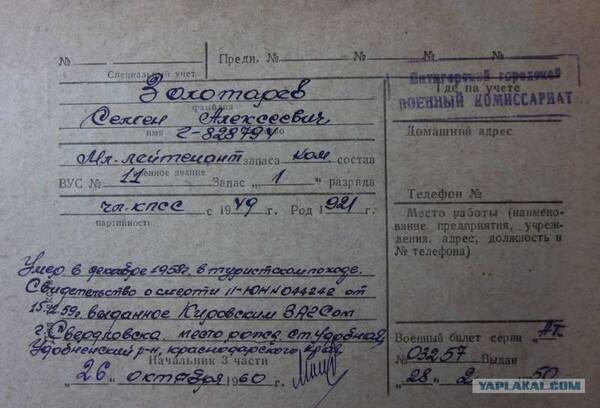 № Предн. № № № №
Специальный учет
Золотарев
фамилия
Семен Алексеевич
имя Г-828794
Мл. лейтенант запаса ком состав
военное звание
ВУС № 11 Запас „ 1 " разряда
чл. КПСС с 1949 г. Род 1921 г.
партийность
Умер в декабре 1958г. в туристском походе.
Свидетельство о смерти II-ЮН № 044242 от
59г. выданное Кировским ЗАГСом
г. Свердловска. место рожд. ст. Удобная,
Удобненский р-н, Краснодарского края
Начальник 3 части
„ 26 " октября 1960 г.
Пятигорский городской
Где на учете
ВОЕННЫЙ КОМИССАРИАТ
Домашний адрес
Телефон №
Место работы (наимено-
вание предприятия, учреж-
дения, адрес, должность и
№ телефона)
Военный билет серии „
№ 03257 Выдан
„ 28 " 2 50
YAPLAKAL.COM